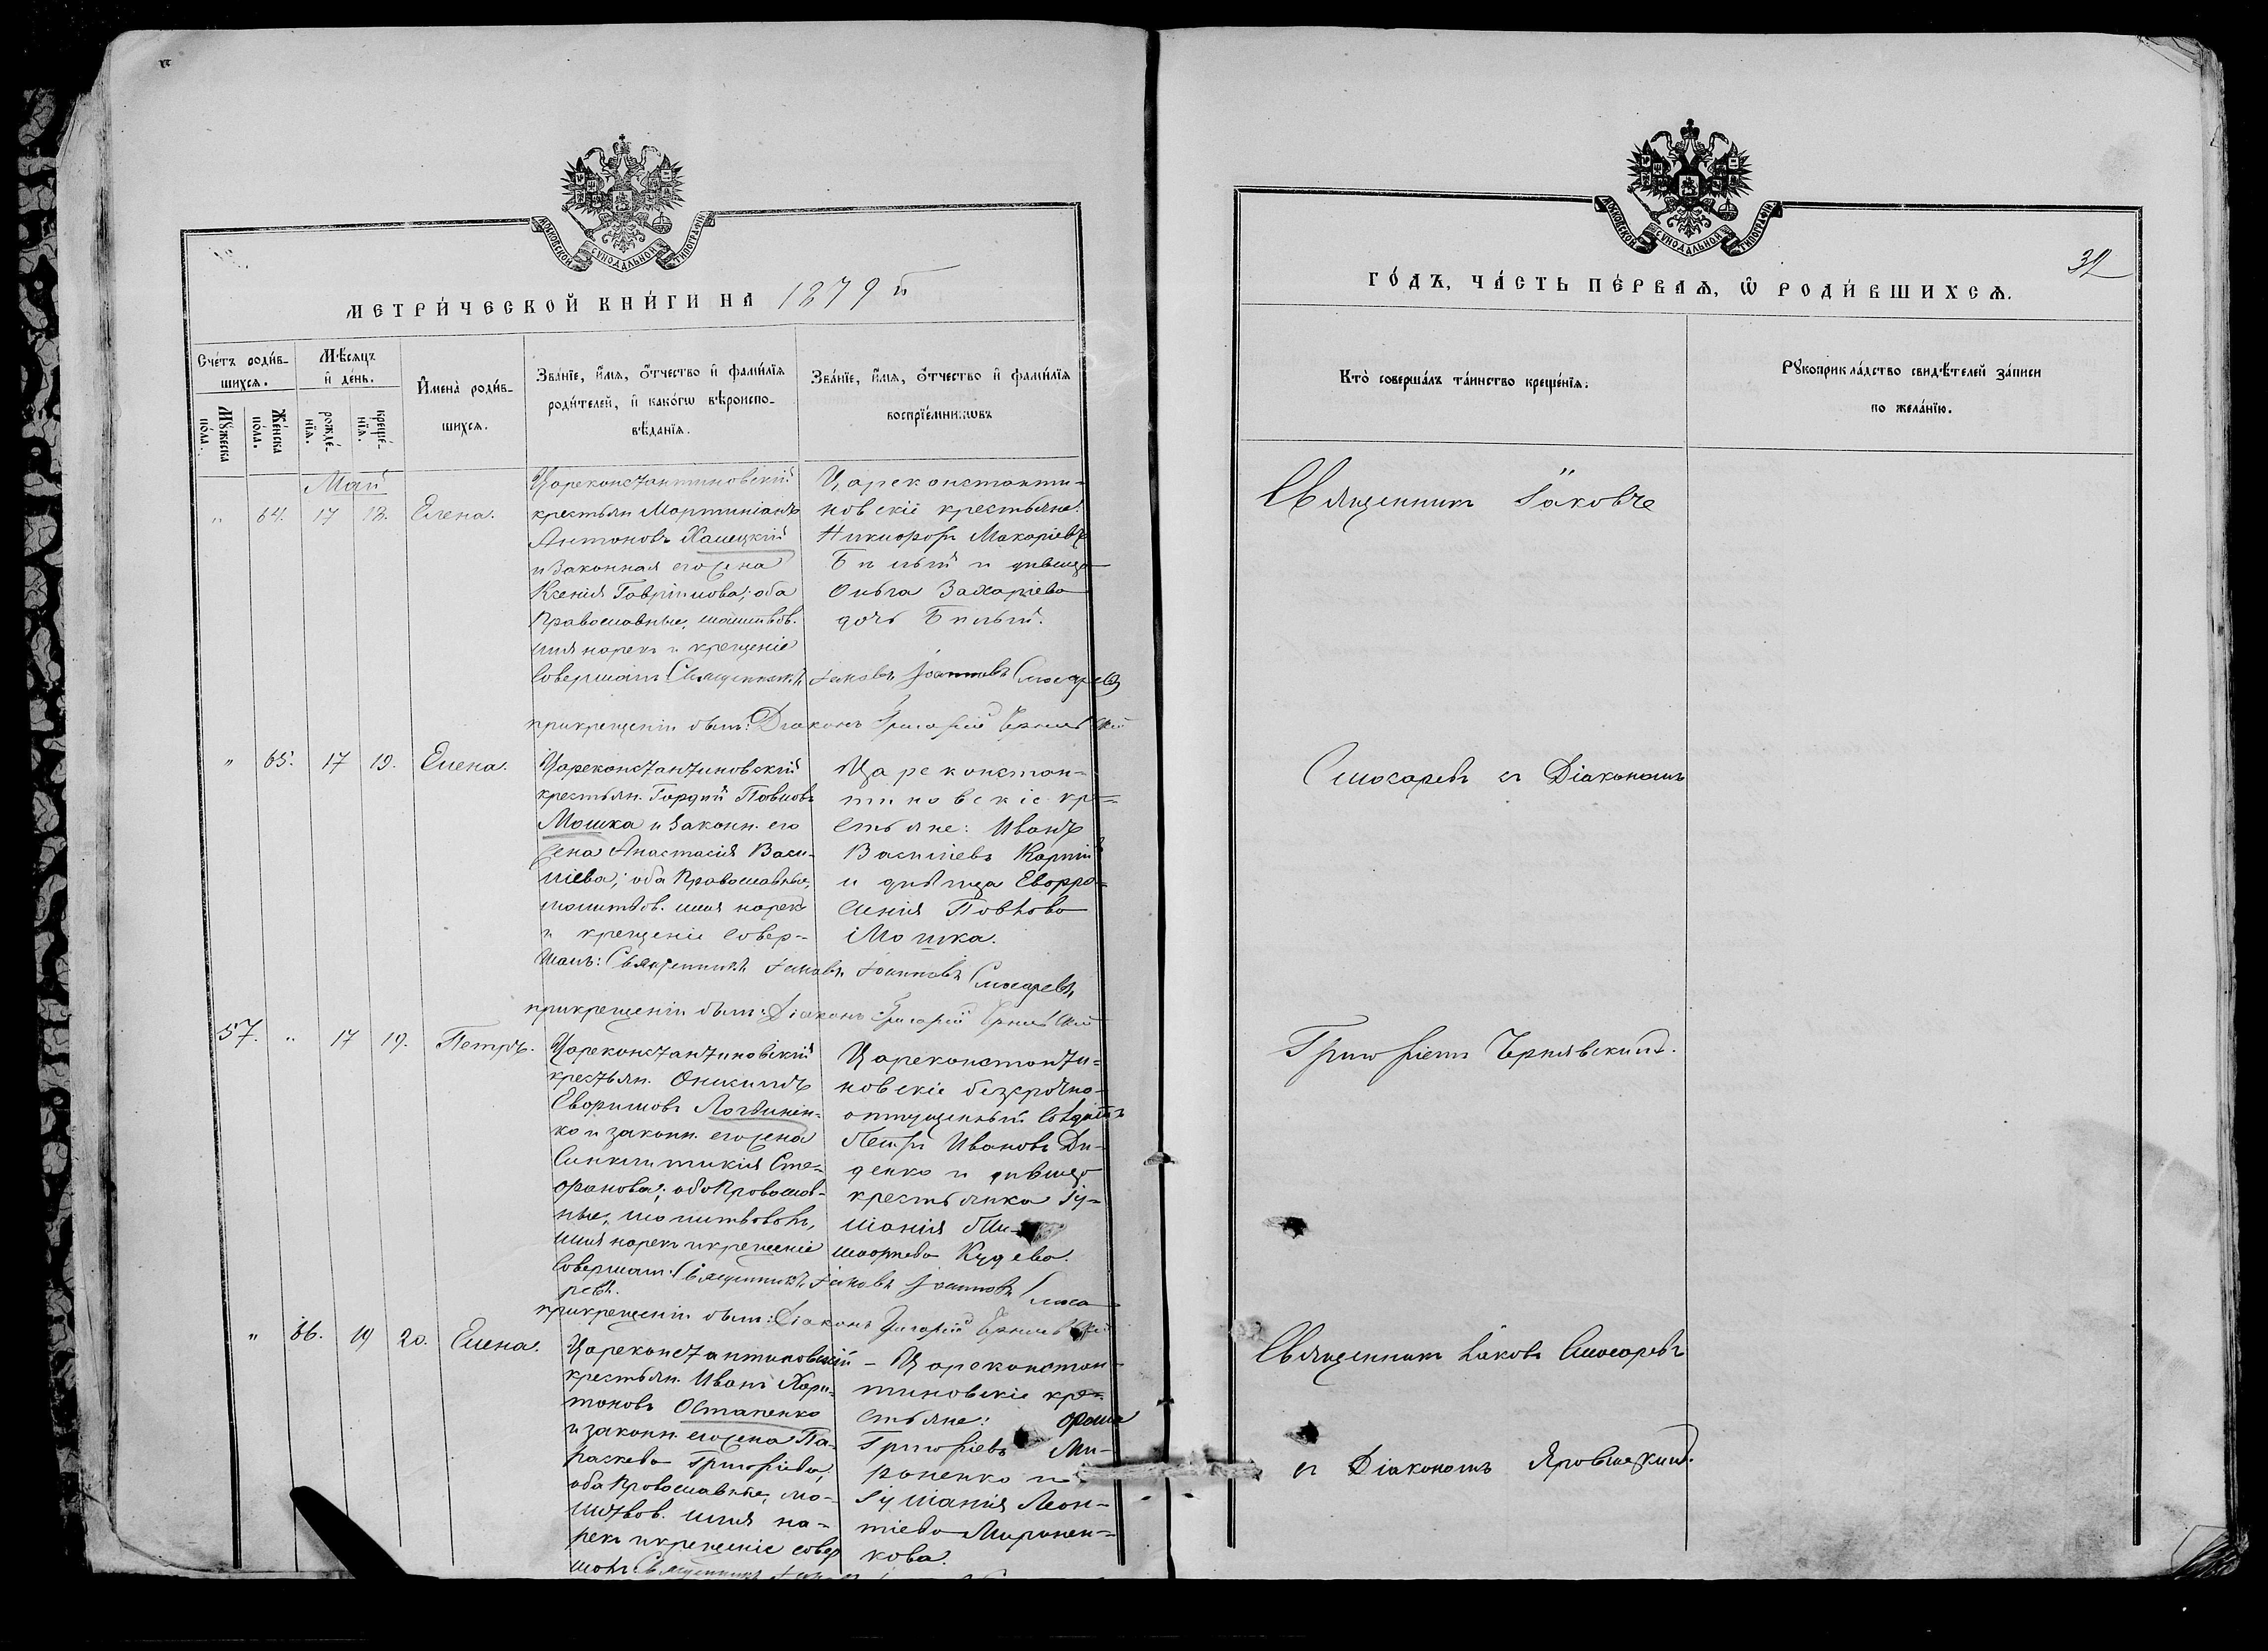 МОСКОВСКОЙ СѴНОДАЛЬНОЙ ТИПОГРАФІИ
МЕТРИ́ЧЕСКОЙ КНИ́ГИ НА 1879 й
Сче́тъ роди́в-
шихсѧ.
Мꙋжеска
по́ла.
Же́нска
по́ла.
Мѣ́сѧцъ
и҆ де́нь.
рожде́-
нїѧ.
креще́-
нїѧ.
И҆мена̀ роди́в-
шихсѧ.
Зва́нїе, и҆́мѧ, ѻ҆́тчество и҆ фами́лїѧ
роди́телей, и҆ како́гѡ вѣроиспо-
вѣ́данїѧ.
Зва́нїе, и҆́мѧ, ѻ҆́тчество и҆ фами́лїѧ
воспрїе́мникѡвъ
Май
" 64. 17 18. Елена.
Цареконстантиновскій
крестьян Мартиніанъ
Антоновъ Хамецкій
и Законная его жена
Ксенія Гавріилова; оба
Православные, молитвов.
имя нарекъ и крещеніе
Совершалъ Священникъ Іаковъ Іоанновъ Слюсаревъ
при крещеніи былъ: Діаконъ Григорій Чернявскій
Цареконстанти-
новскіе крестьяне:
Никифоръ Макаріевъ
Бѣлый и дѣвица
Ольга Захаріева
дочь Бѣлый.
" 65. 17 19. Елена.
Цареконстантиновскій
крестьян. Гордій Павловъ
Мошка и Законн. его
жена Анастасія Васи-
ліева; оба Православные,
молитвов. имя нарекъ
и крещеніе совер-
шалъ: Священникъ Іаковъ Іоанновъ Слюсаревъ
при крещеніи былъ: Діаконъ Григорій Чернявскій
Цареконстан-
тиновскіе кре-
стьяне: Иванъ
Василіевъ Карпій
и дѣвица Евфро-
синія Павлова
Мошка.
57. " 17 19. Петръ.
Цареконстантиновскій
крестьян. Онисимъ
Евфимовъ Логвинен-
ко и законн. его жена
Синклитикія Сте-
фанова; оба Православ-
ные, молитвовалъ,
имя нарекъ и крещеніе
Совершалъ: Священникъ Іаковъ Іоанновъ Слюса-
ревъ.
при крещеніи былъ: Діаконъ Григорій Чернявскій
Цареконстанти-
новскіе безсрочно-
отпущенный Солдатъ
Петръ Ивановъ Ди-
денко и дѣвица
крестьянка Іу-
ліанія
Кудева.
" 66. 19 20. Елена.
Цареконстантиновскій
крестьян. Иванъ Хари-
тоновъ Остапенко
и законн. его жена Па-
раскева Григоріева,
оба Православные, мо-
литвов. имя на-
рекъ и крещеніе совер
шалъ: Священникъ
Цареконстан-
тиновскіе кре-
стьяне: Фома
Григоріевъ Ми-
роненко и
Іуліанія Леон-
тіева Миронен-
кова.
МОСКОВСКОЙ СѴНОДАЛЬНОЙ ТИПОГРАФІИ
32
ГО́ДЪ, ЧА́СТЬ ПЕ́РВАѦ, Ѡ҆ РОДИ́ВШИХСѦ.
Кто̀ соверша́лъ та́инство креще́нїѧ.
Рꙋкоприкла́дство свидѣ́телей за́писи
по жела́нїю.
Священникъ Іаковъ
Слюсаревъ съ Діакономъ
Григоріемъ Чернявскимъ.
Священникъ Іаковъ Слюсаревъ
съ Діакономъ Яровицкимъ.